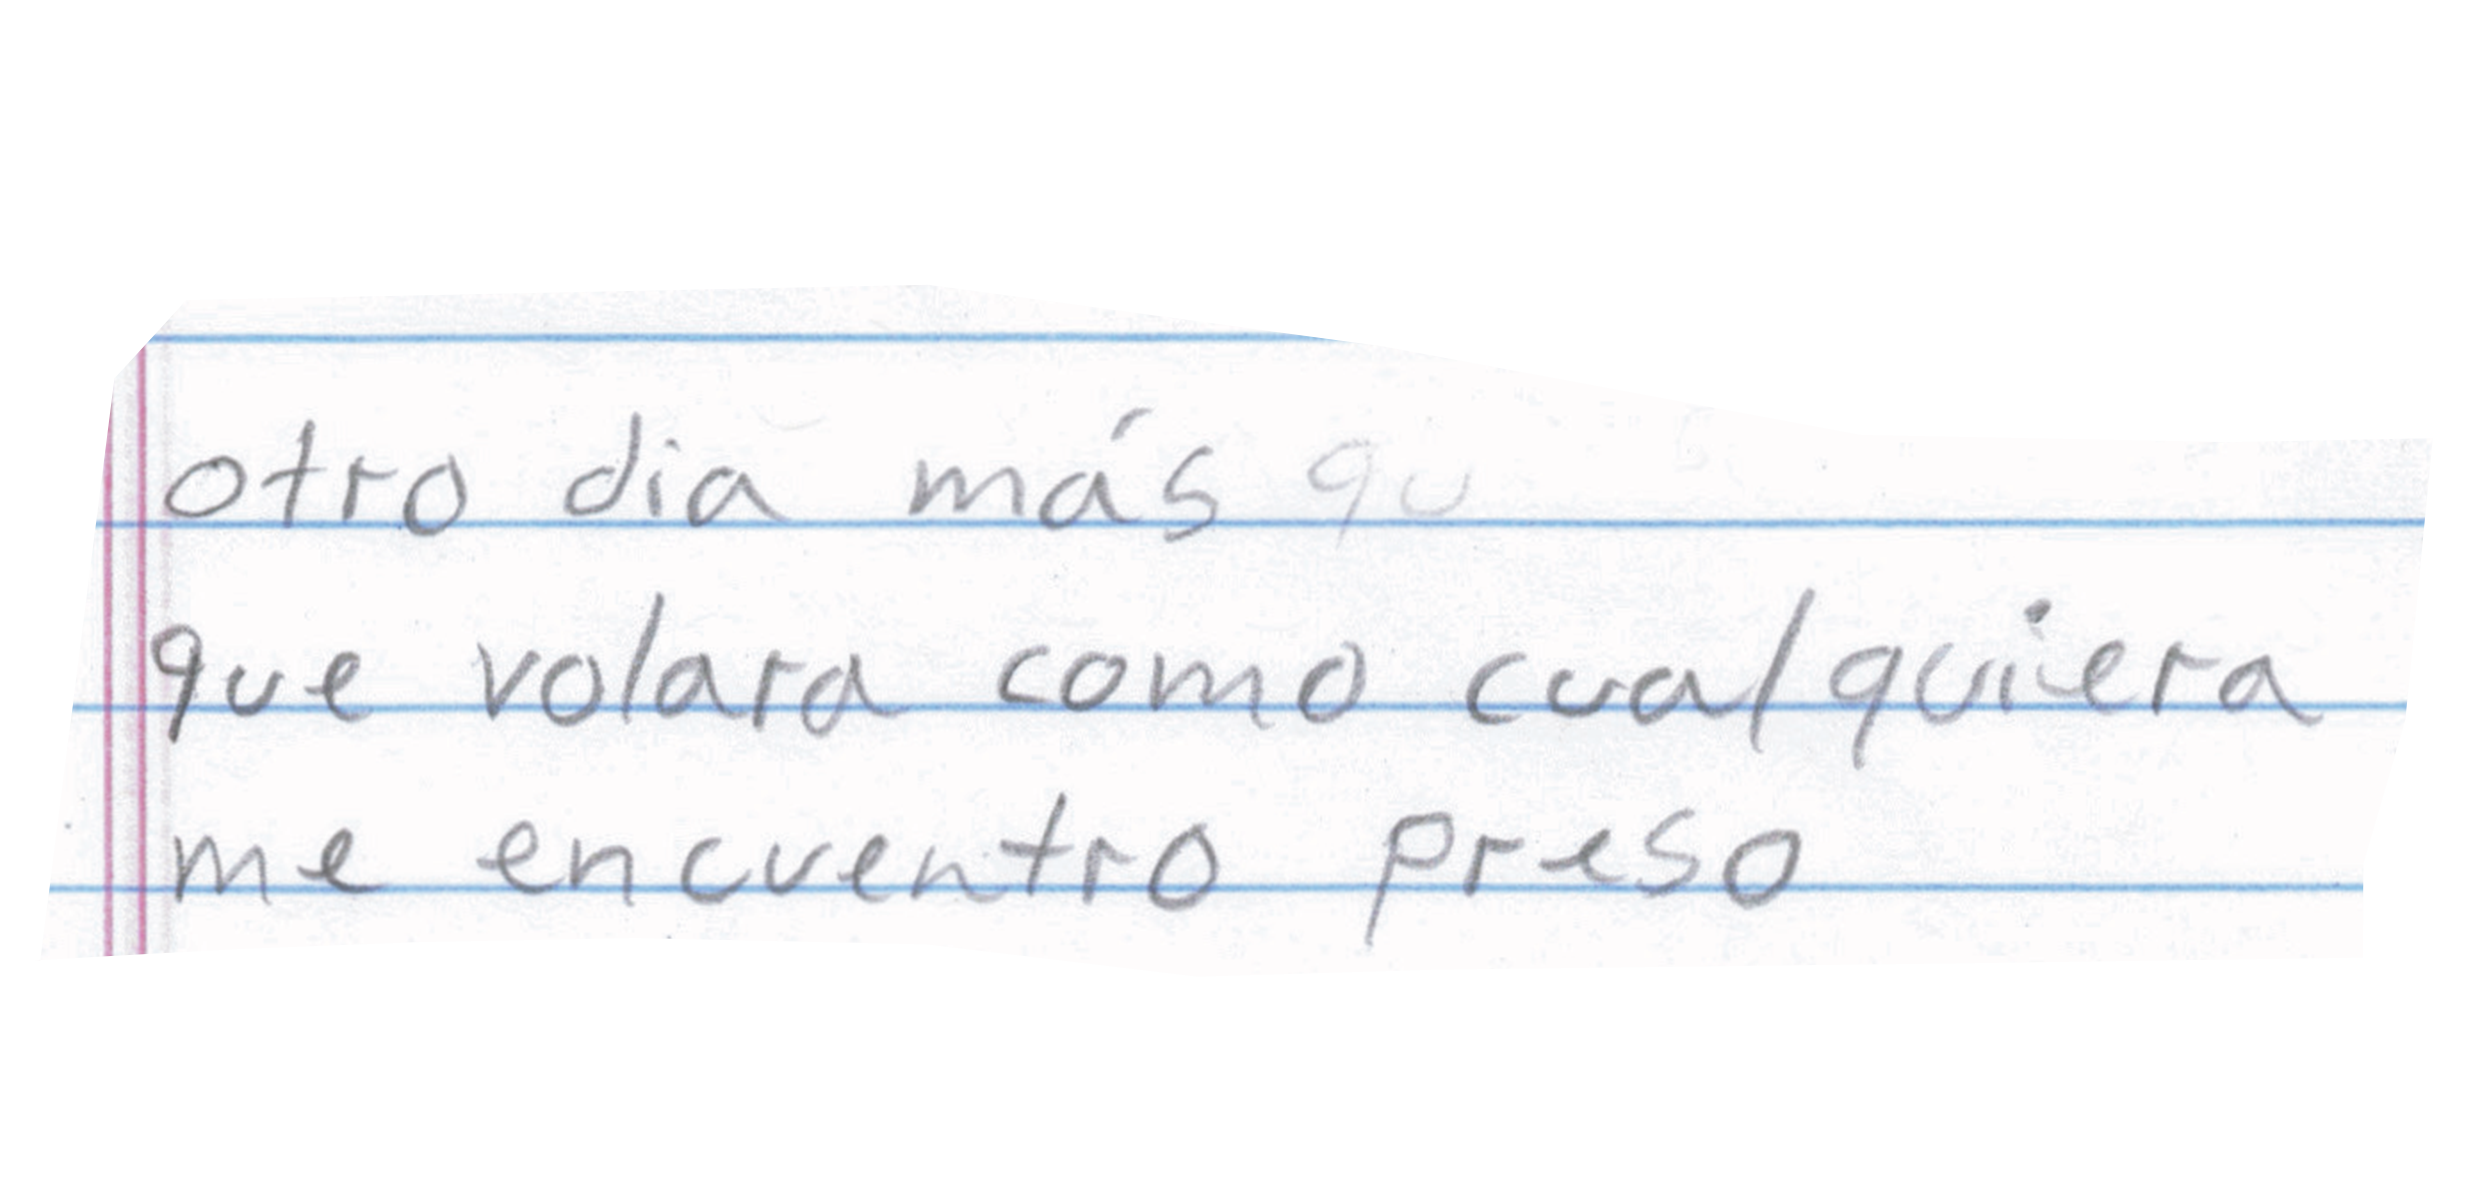 otro dia más qu
que volara como cualquiera
me encuentro preso